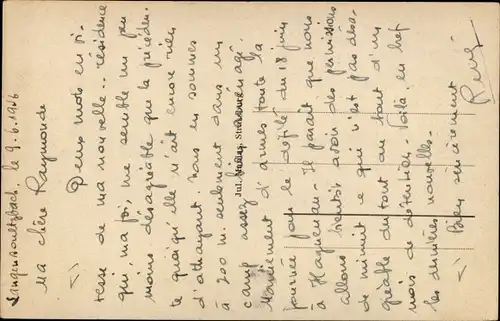 Langensoultzbach, le 9.6.1946
Ma chère Raymonde
Deux mots en vi-
tesse de ma nouvelle... résidence
qui, ma foi, me semble un peu
moins désagréable que la précéden-
te quoiqu'elle n'ait encore rien
d'attrayant. Nous en sommes
à 200 m. seulement dans un
camp assez bien
Maniement d'armes toute la
journée pour le défilé du 18 juin
à Haguenau. Il parait que nous
allons bientôt avoir des permissions
de minuit ce qui n'est pas désa-
gréable du tout au bout d'un
mois de détention. Voilà en bref
les dernières nouvelles.
Bien sincèrement
René